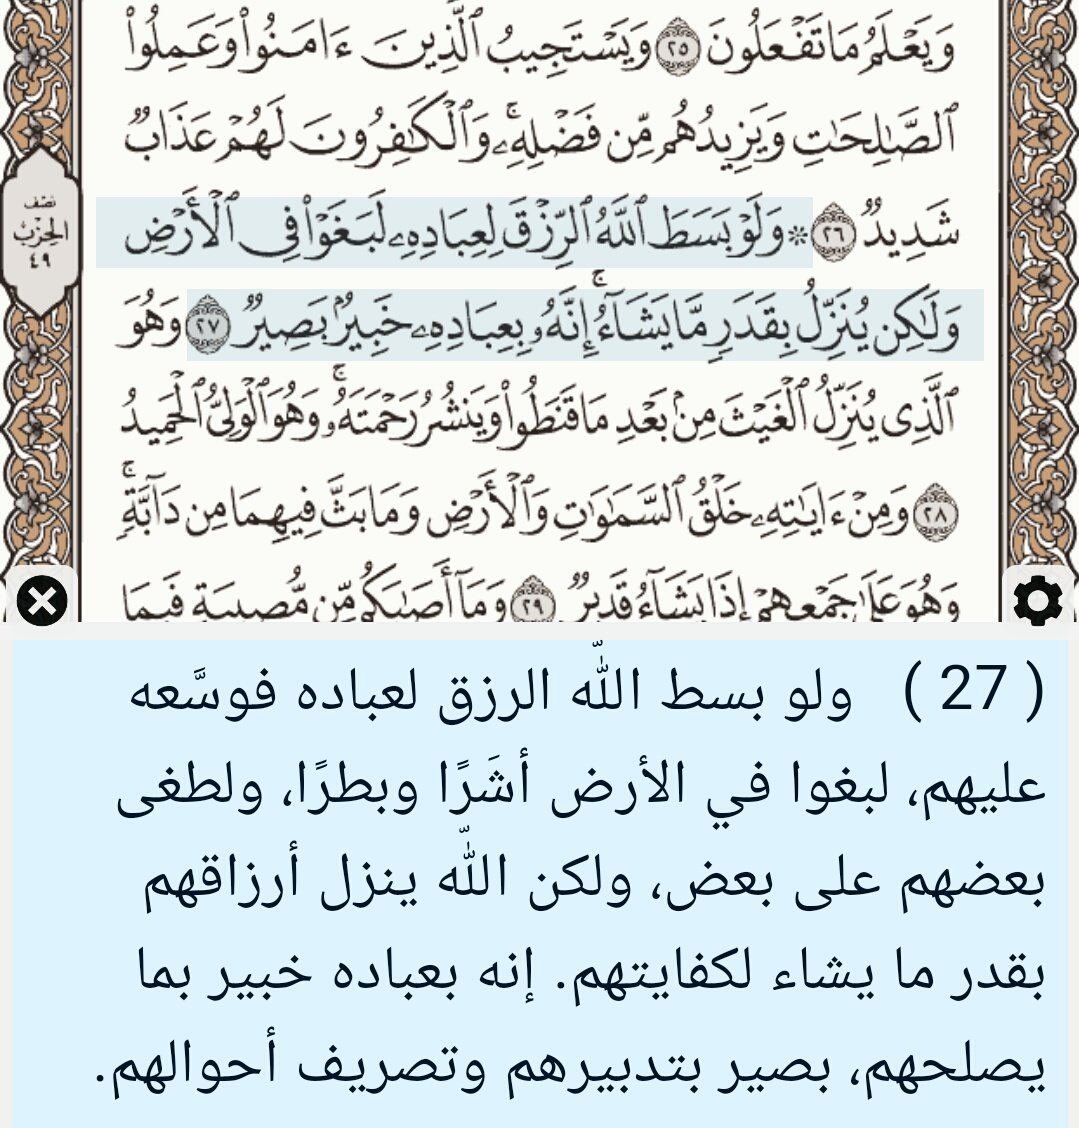 وَيَعْلَمُ مَا تَفْعَلُونَ ٢٥ وَيَسْتَجِيبُ ٱلَّذِينَ ءَامَنُوا۟ وَعَمِلُوا۟
ٱلصَّٰلِحَٰتِ وَيَزِيدُهُم مِّن فَضْلِهِۦۚ وَٱلْكَٰفِرُونَ لَهُمْ عَذَابٌ
شَدِيدٌ ٢٦ ۞ وَلَوْ بَسَطَ ٱللَّهُ ٱلرِّزْقَ لِعِبَادِهِۦ لَبَغَوْا۟ فِى ٱلْأَرْضِ
وَلَٰكِن يُنَزِّلُ بِقَدَرٍ مَّا يَشَآءُۚ إِنَّهُۥ بِعِبَادِهِۦ خَبِيرٌۢ بَصِيرٌ ٢٧ وَهُوَ
ٱلَّذِى يُنَزِّلُ ٱلْغَيْثَ مِنۢ بَعْدِ مَا قَنَطُوا۟ وَيَنشُرُ رَحْمَتَهُۥۚ وَهُوَ ٱلْوَلِىُّ ٱلْحَمِيدُ
٢٨ وَمِنْ ءَايَٰتِهِۦ خَلْقُ ٱلسَّمَٰوَٰتِ وَٱلْأَرْضِ وَمَا بَثَّ فِيهِمَا مِن دَآبَّةٍۚ
وَهُوَ عَلَىٰ جَمْعِهِمْ إِذَا يَشَآءُ قَدِيرٌ ٢٩ وَمَآ أَصَٰبَكُم مِّن مُّصِيبَةٍ فَبِمَا
نصف
الحزب
٤٩
( 27 ) ولو بسط الله الرزق لعباده فوسَّعه
عليهم، لبغوا في الأرض أشَرًا وبطرًا، ولطغى
بعضهم على بعض، ولكن الله ينزل أرزاقهم
بقدر ما يشاء لكفايتهم. إنه بعباده خبير بما
يصلحهم، بصير بتدبيرهم وتصريف أحوالهم.